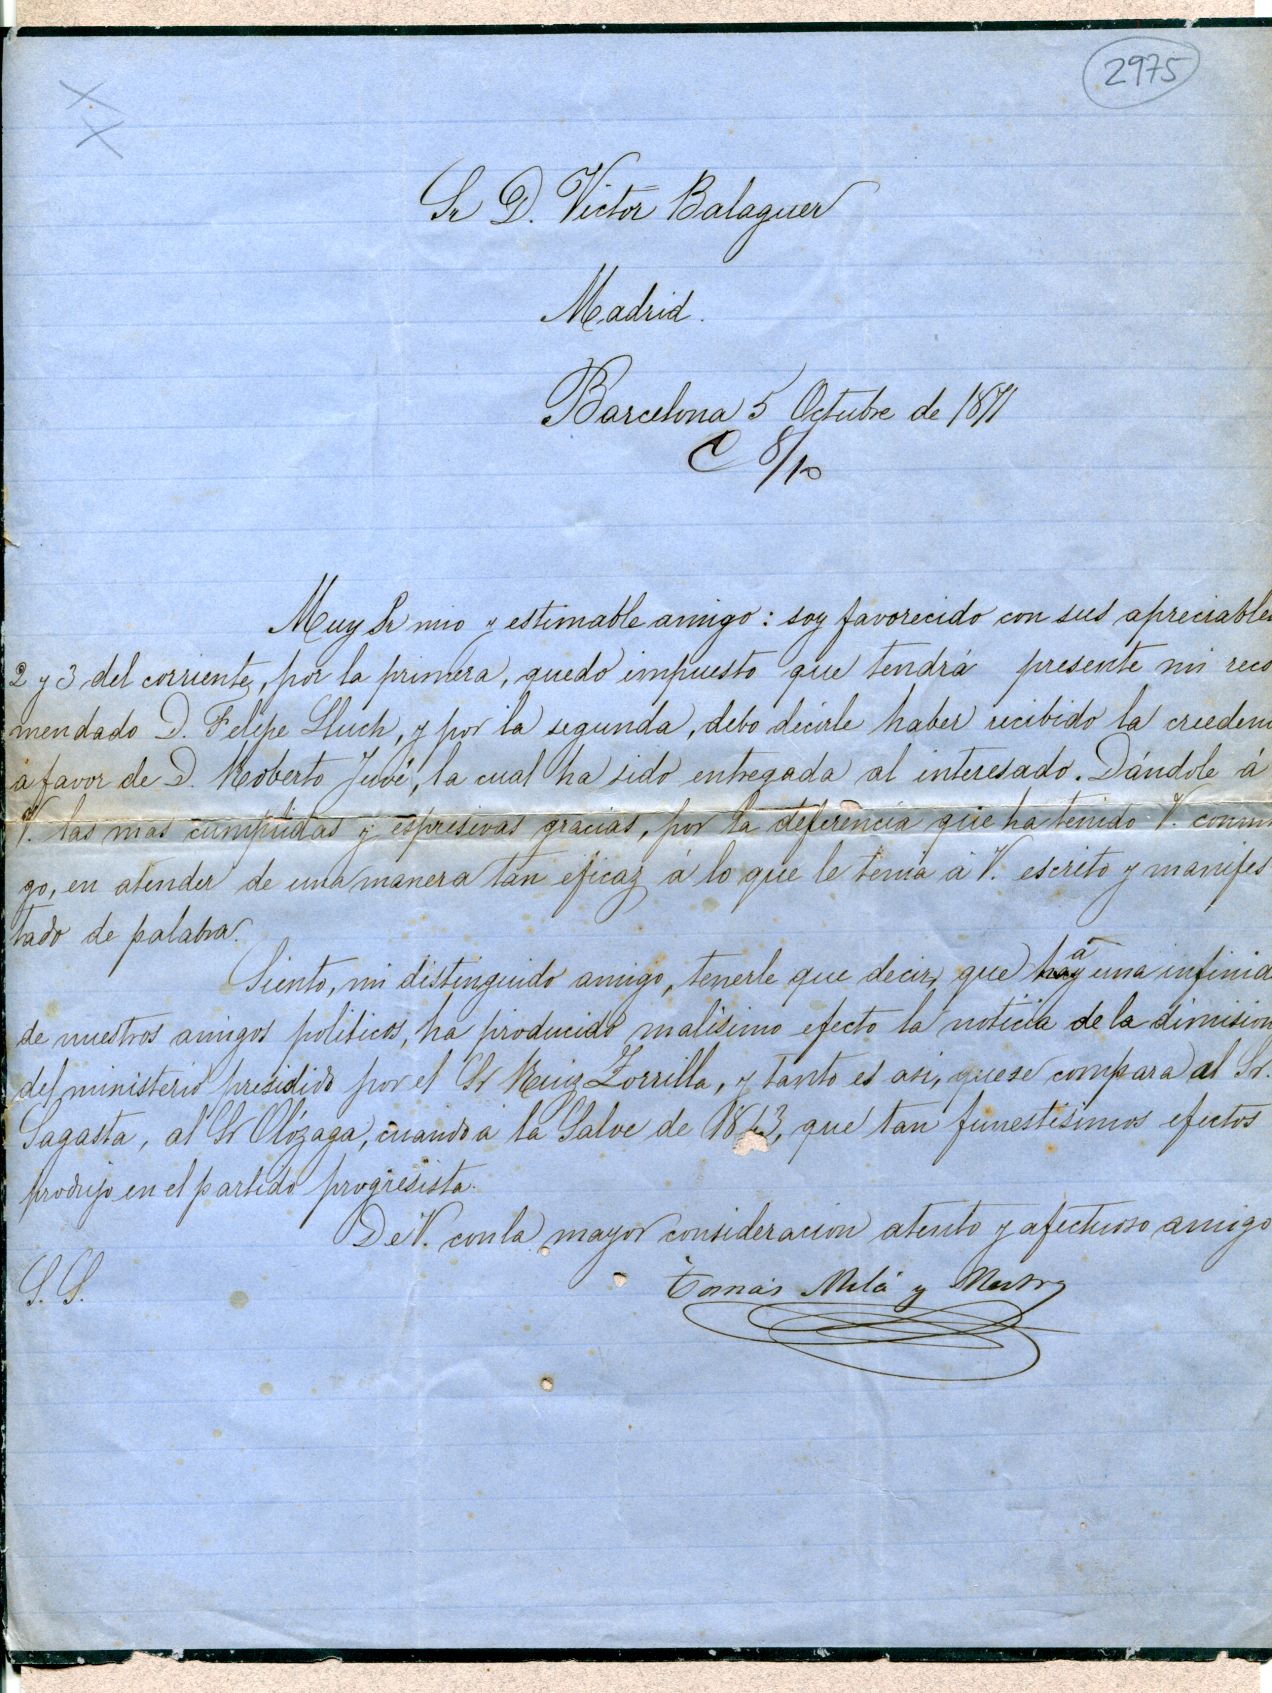 2975
Sr D. Victor Balaguer
Madrid.
Barcelona 5 Octubre de 1871
C 8/10
Muy Sr mio y estimable amigo: soy favorecido con sus apreciables
2 y 3 del corriente, por la primera, quedo impuesto que tendrá presente mi reco
mendado D. Felipe Lluch, y por la segunda, debo decirle haber recibido la creedenc
á favor de D. Roberto Juvé, la cual ha sido entregada al interesado. Dándole á
V. las mas cumplidas y espresivas gracias, por la deferencia que ha tenido V. conmi
go, en atender de una manera tan eficaz á lo que le tenia á V. escrito y manifes
tado de palabra.
Siento, mi distinguido amigo, tenerle que decir, que á una infinid
de nuestros amigos politicos, ha producido malisimo efecto la noticia de la dimision
del ministerio presidido por el Sr Ruiz Zorrilla, y tanto es asi, que se compara al Sr.
Sagasta, al Sr Olózaga, cuando a la Salve de 1843, que tan funestisimos efectos
produjo en el partido progresista.
De V. con la mayor consideracion atento y afectuoso amigo
S. S.
Tomás Milá y